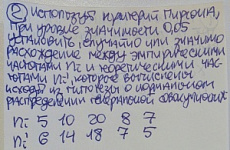 ② Используя критерий Пирсона,
при уровне значимости 0,05
установить, случайно или значимо
расхождение между эмпирическими
частотами ni и теоретическими час-
тотами ni', которое вычислены
исходя из гипотезы о нормальном
распределении генеральной совокупности
ni 5 10 20 8 7
ni' 6 14 18 7 5